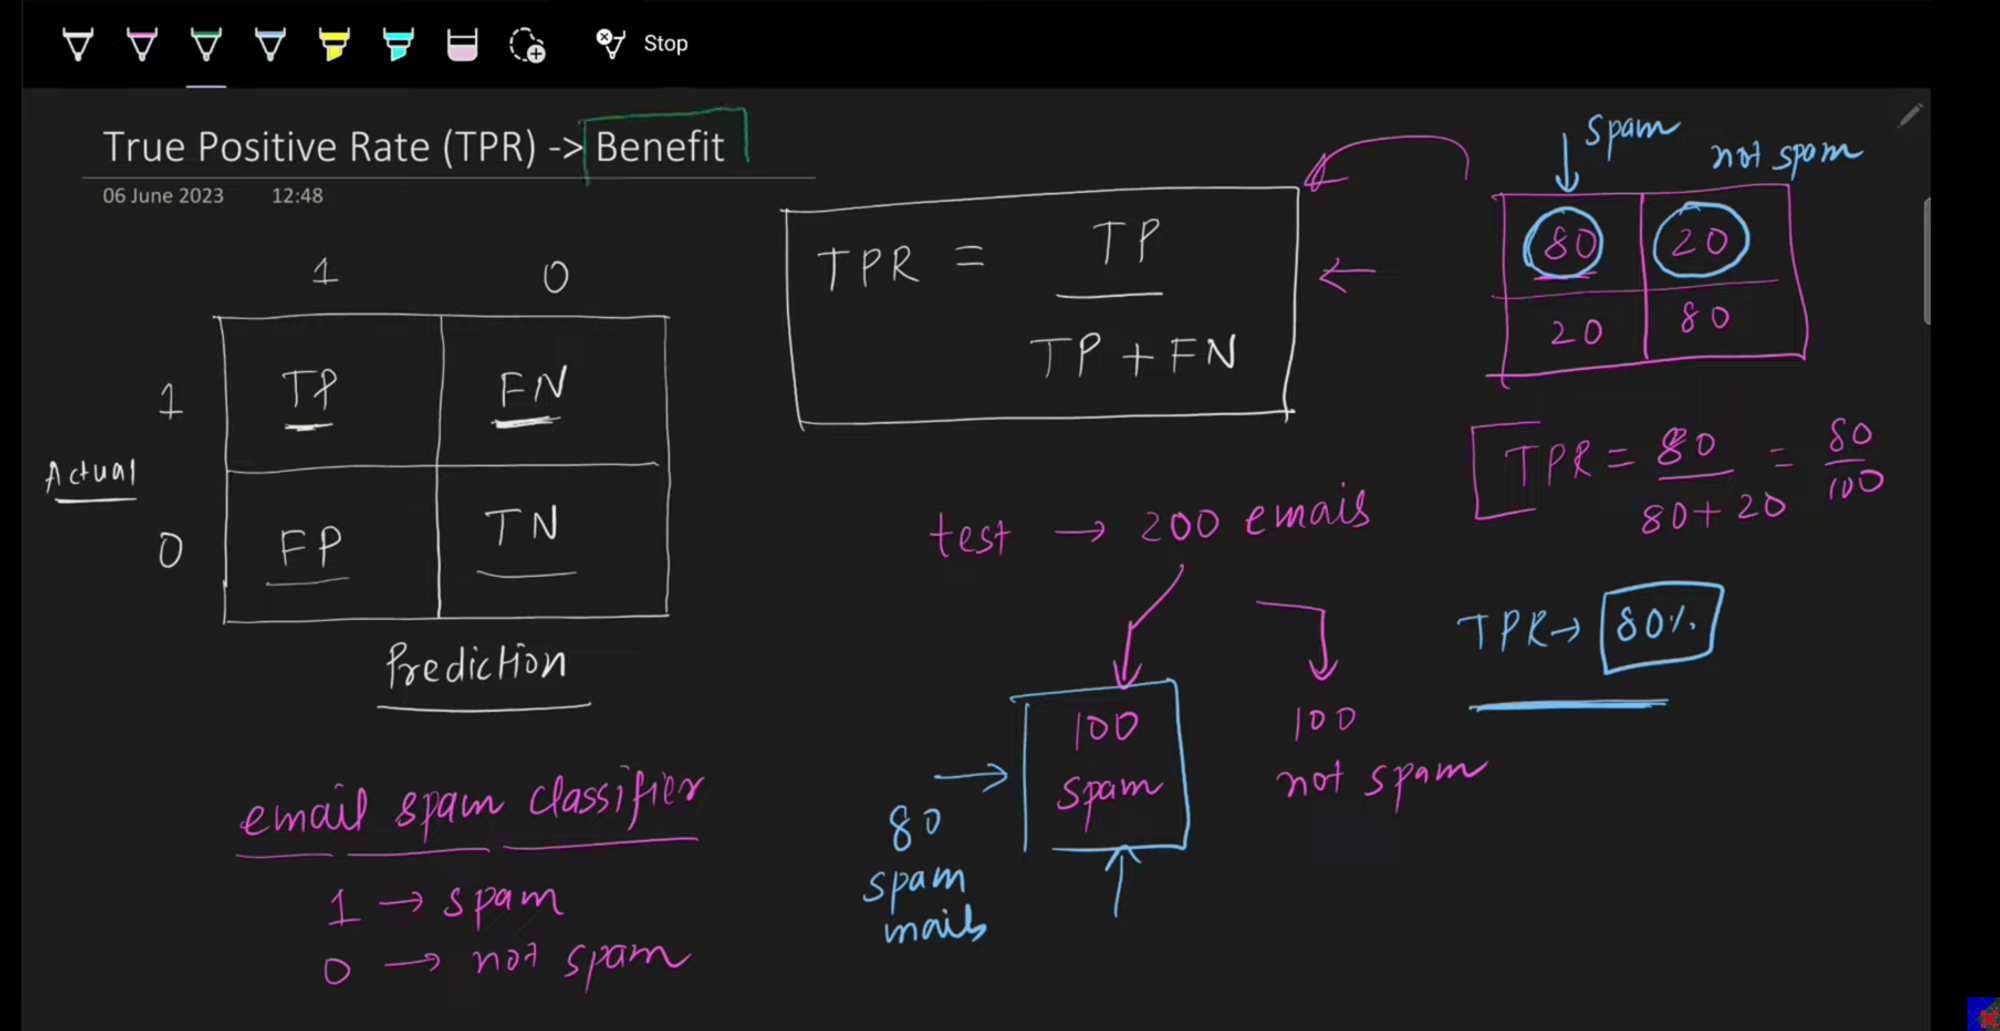 Stop
True Positive Rate (TPR) -> Benefit
06 June 2023 12:48
1 0
1 TP FN
Actual
0 FP TN
Prediction
email spam classifier
1 → spam
0 → not spam
TPR = TP
TP + FN
test → 200 emais
100
spam
100
not spam
→
80
spam
mails
spam
not spam
80 20
20 80
TPR = 80 = 80
80 + 20 100
TPR → 80%